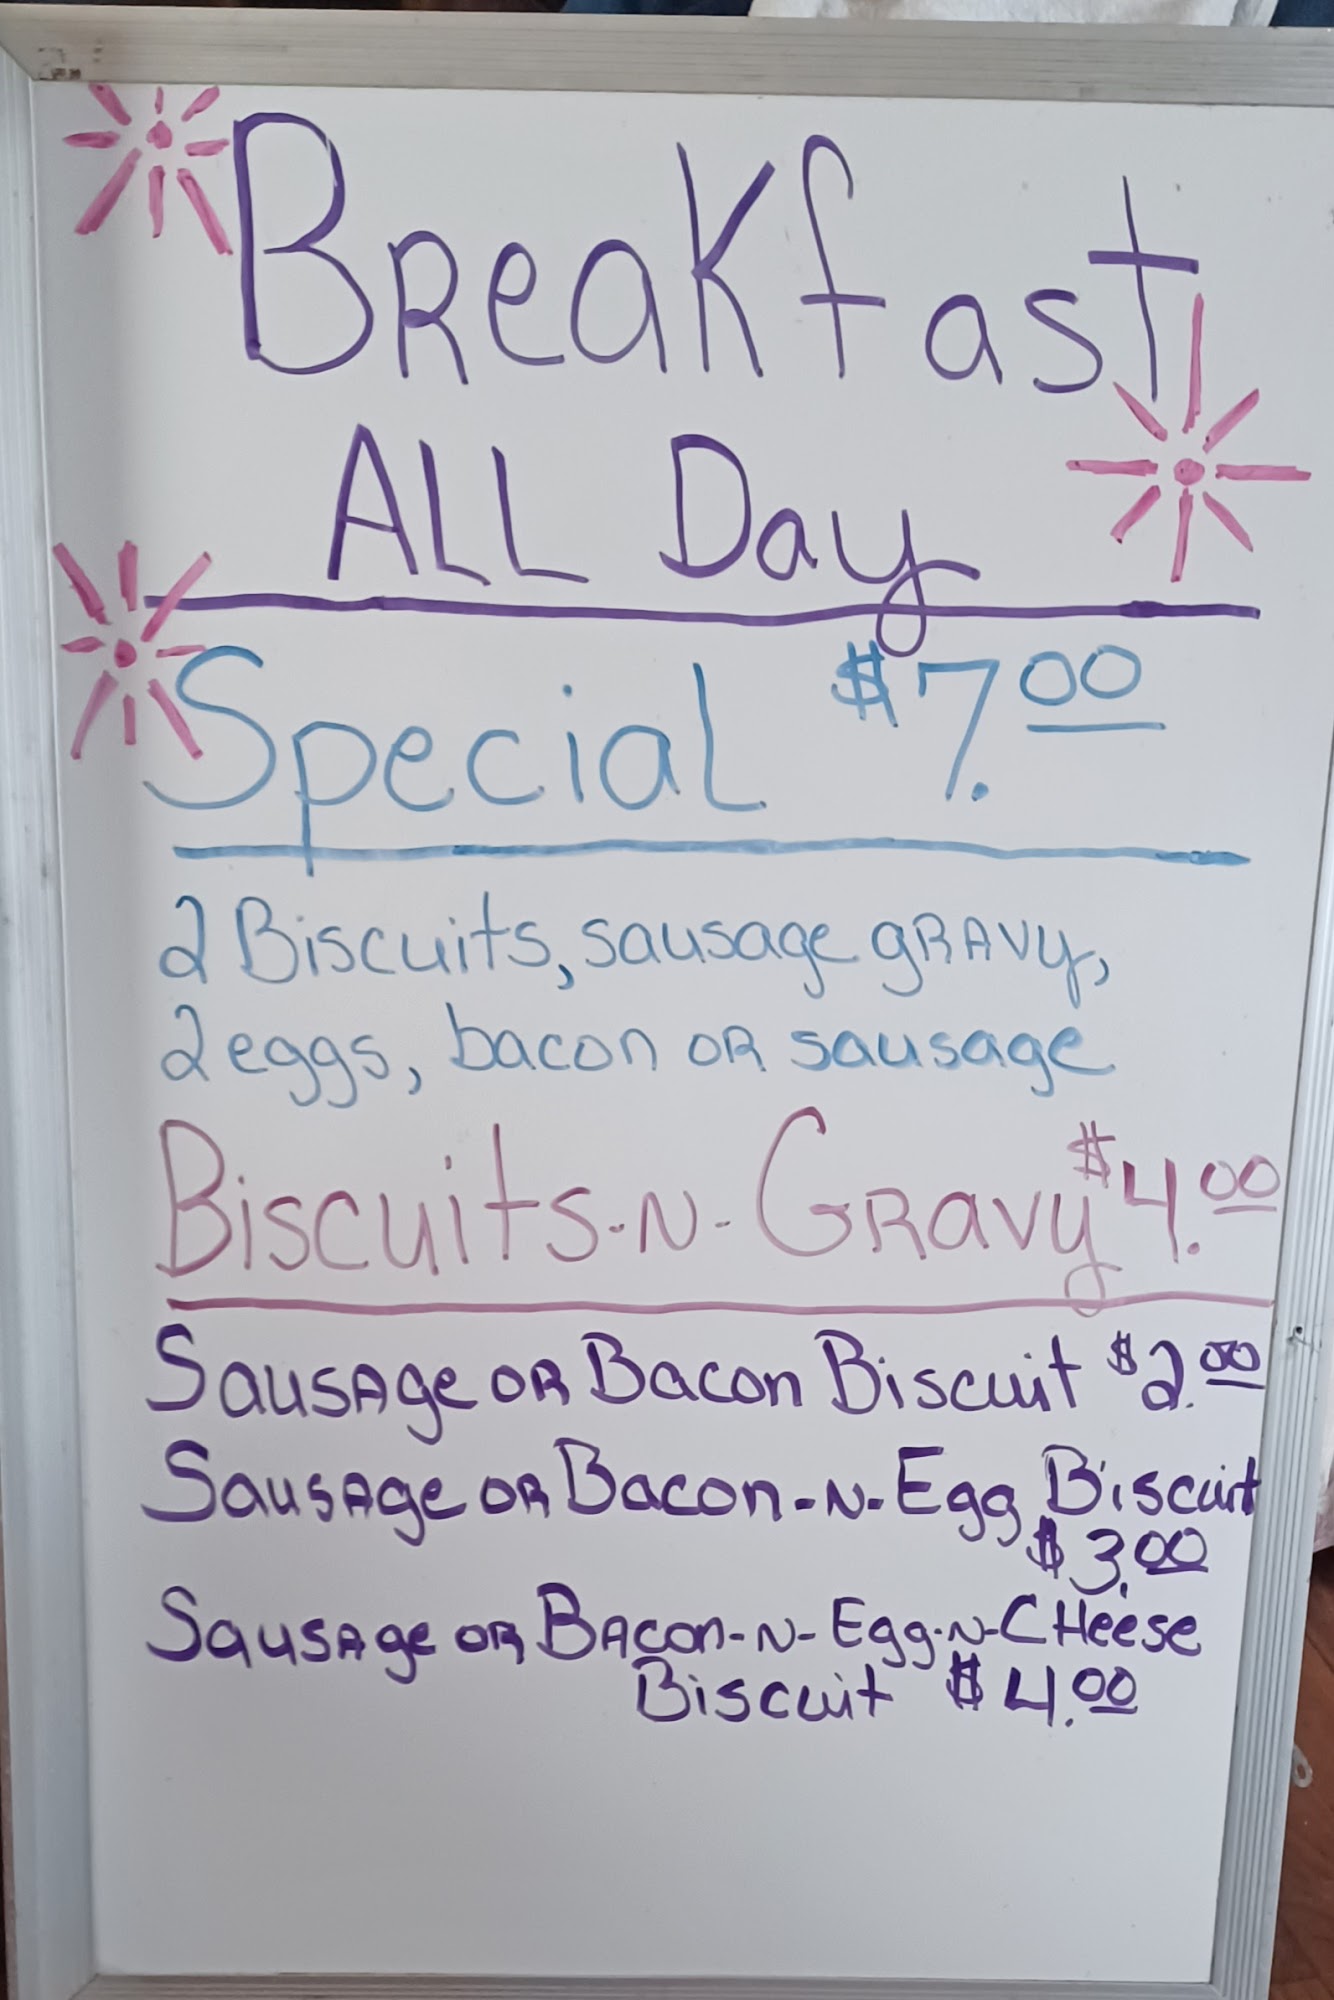 Breakfast
ALL Day
Special $7.00
2 Biscuits, sausage gravy,
2 eggs, bacon or sausage
Biscuits-N-Gravy $4.00
Sausage or Bacon Biscuit $2.00
Sausage or Bacon-N-Egg Biscuit
$3.00
Sausage or Bacon-N-Egg-N-Cheese
Biscuit $4.00